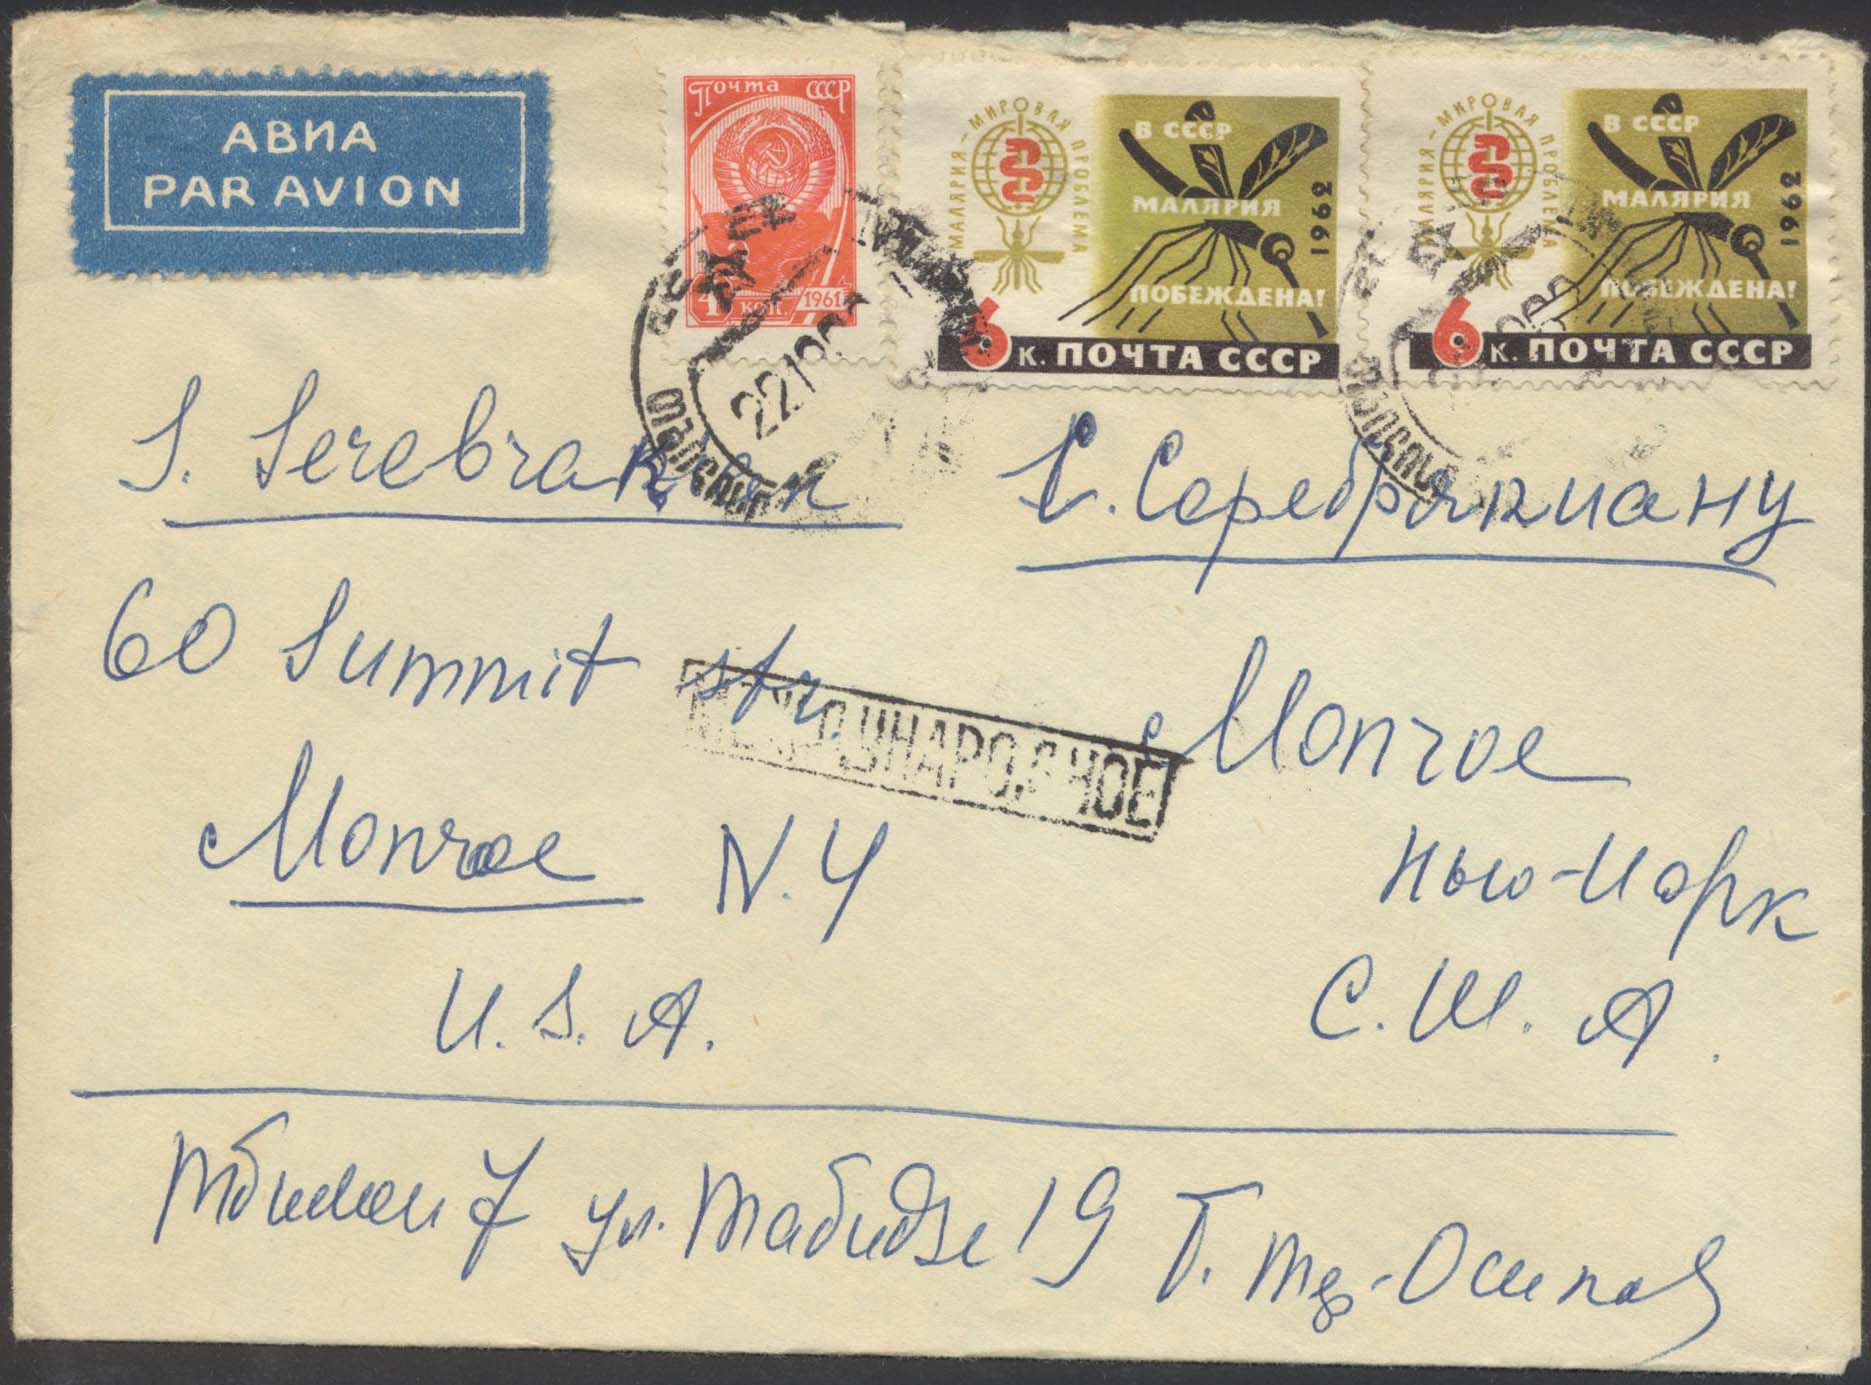 АВИА
PAR AVION
Почта СССР
4 КОП. 1961
МАЛЯРИЯ – МИРОВАЯ ПРОБЛЕМА
В СССР
МАЛЯРИЯ
ПОБЕЖДЕНА!
1962
6 К. ПОЧТА СССР
МАЛЯРИЯ – МИРОВАЯ ПРОБЛЕМА
В СССР
МАЛЯРИЯ
ПОБЕЖДЕНА!
1962
6 К. ПОЧТА СССР
S. Serebrakian
60 Summit str.
Monroe N.Y
U.S.A.
С. Серебрякиану
Monroe
Нью-Иорк
С.Ш.А.
МЕЖДУНАРОДНОЕ
Тбилиси 7 ул. Табидзе 19 Т. Тер-Осипов